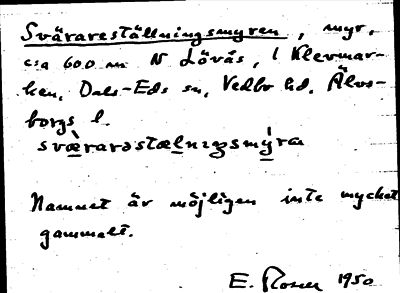 Svärareställningsmyren, myr,
c:a 600 m N Lövås, i Klevmar-
ken, Dals-Eds sn, Vedbo hd, Älvs-
borgs l.
sværarəstæl̲nıŋsmy̲ra
Namnet är möjligen inte mycket
gammalt.
E. Rosén 1950